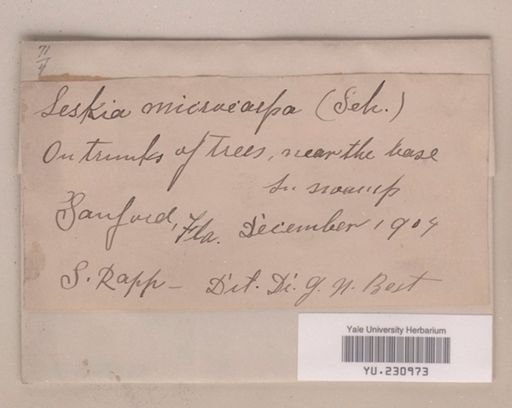 71/4
Leskia microcarpa (Sch.)
On trunks of trees, near the base
In swamp
Sanford, Fla. December 1904
S. Rapp - Det. Dr. G. N. Best
Yale University Herbarium
YU.230973